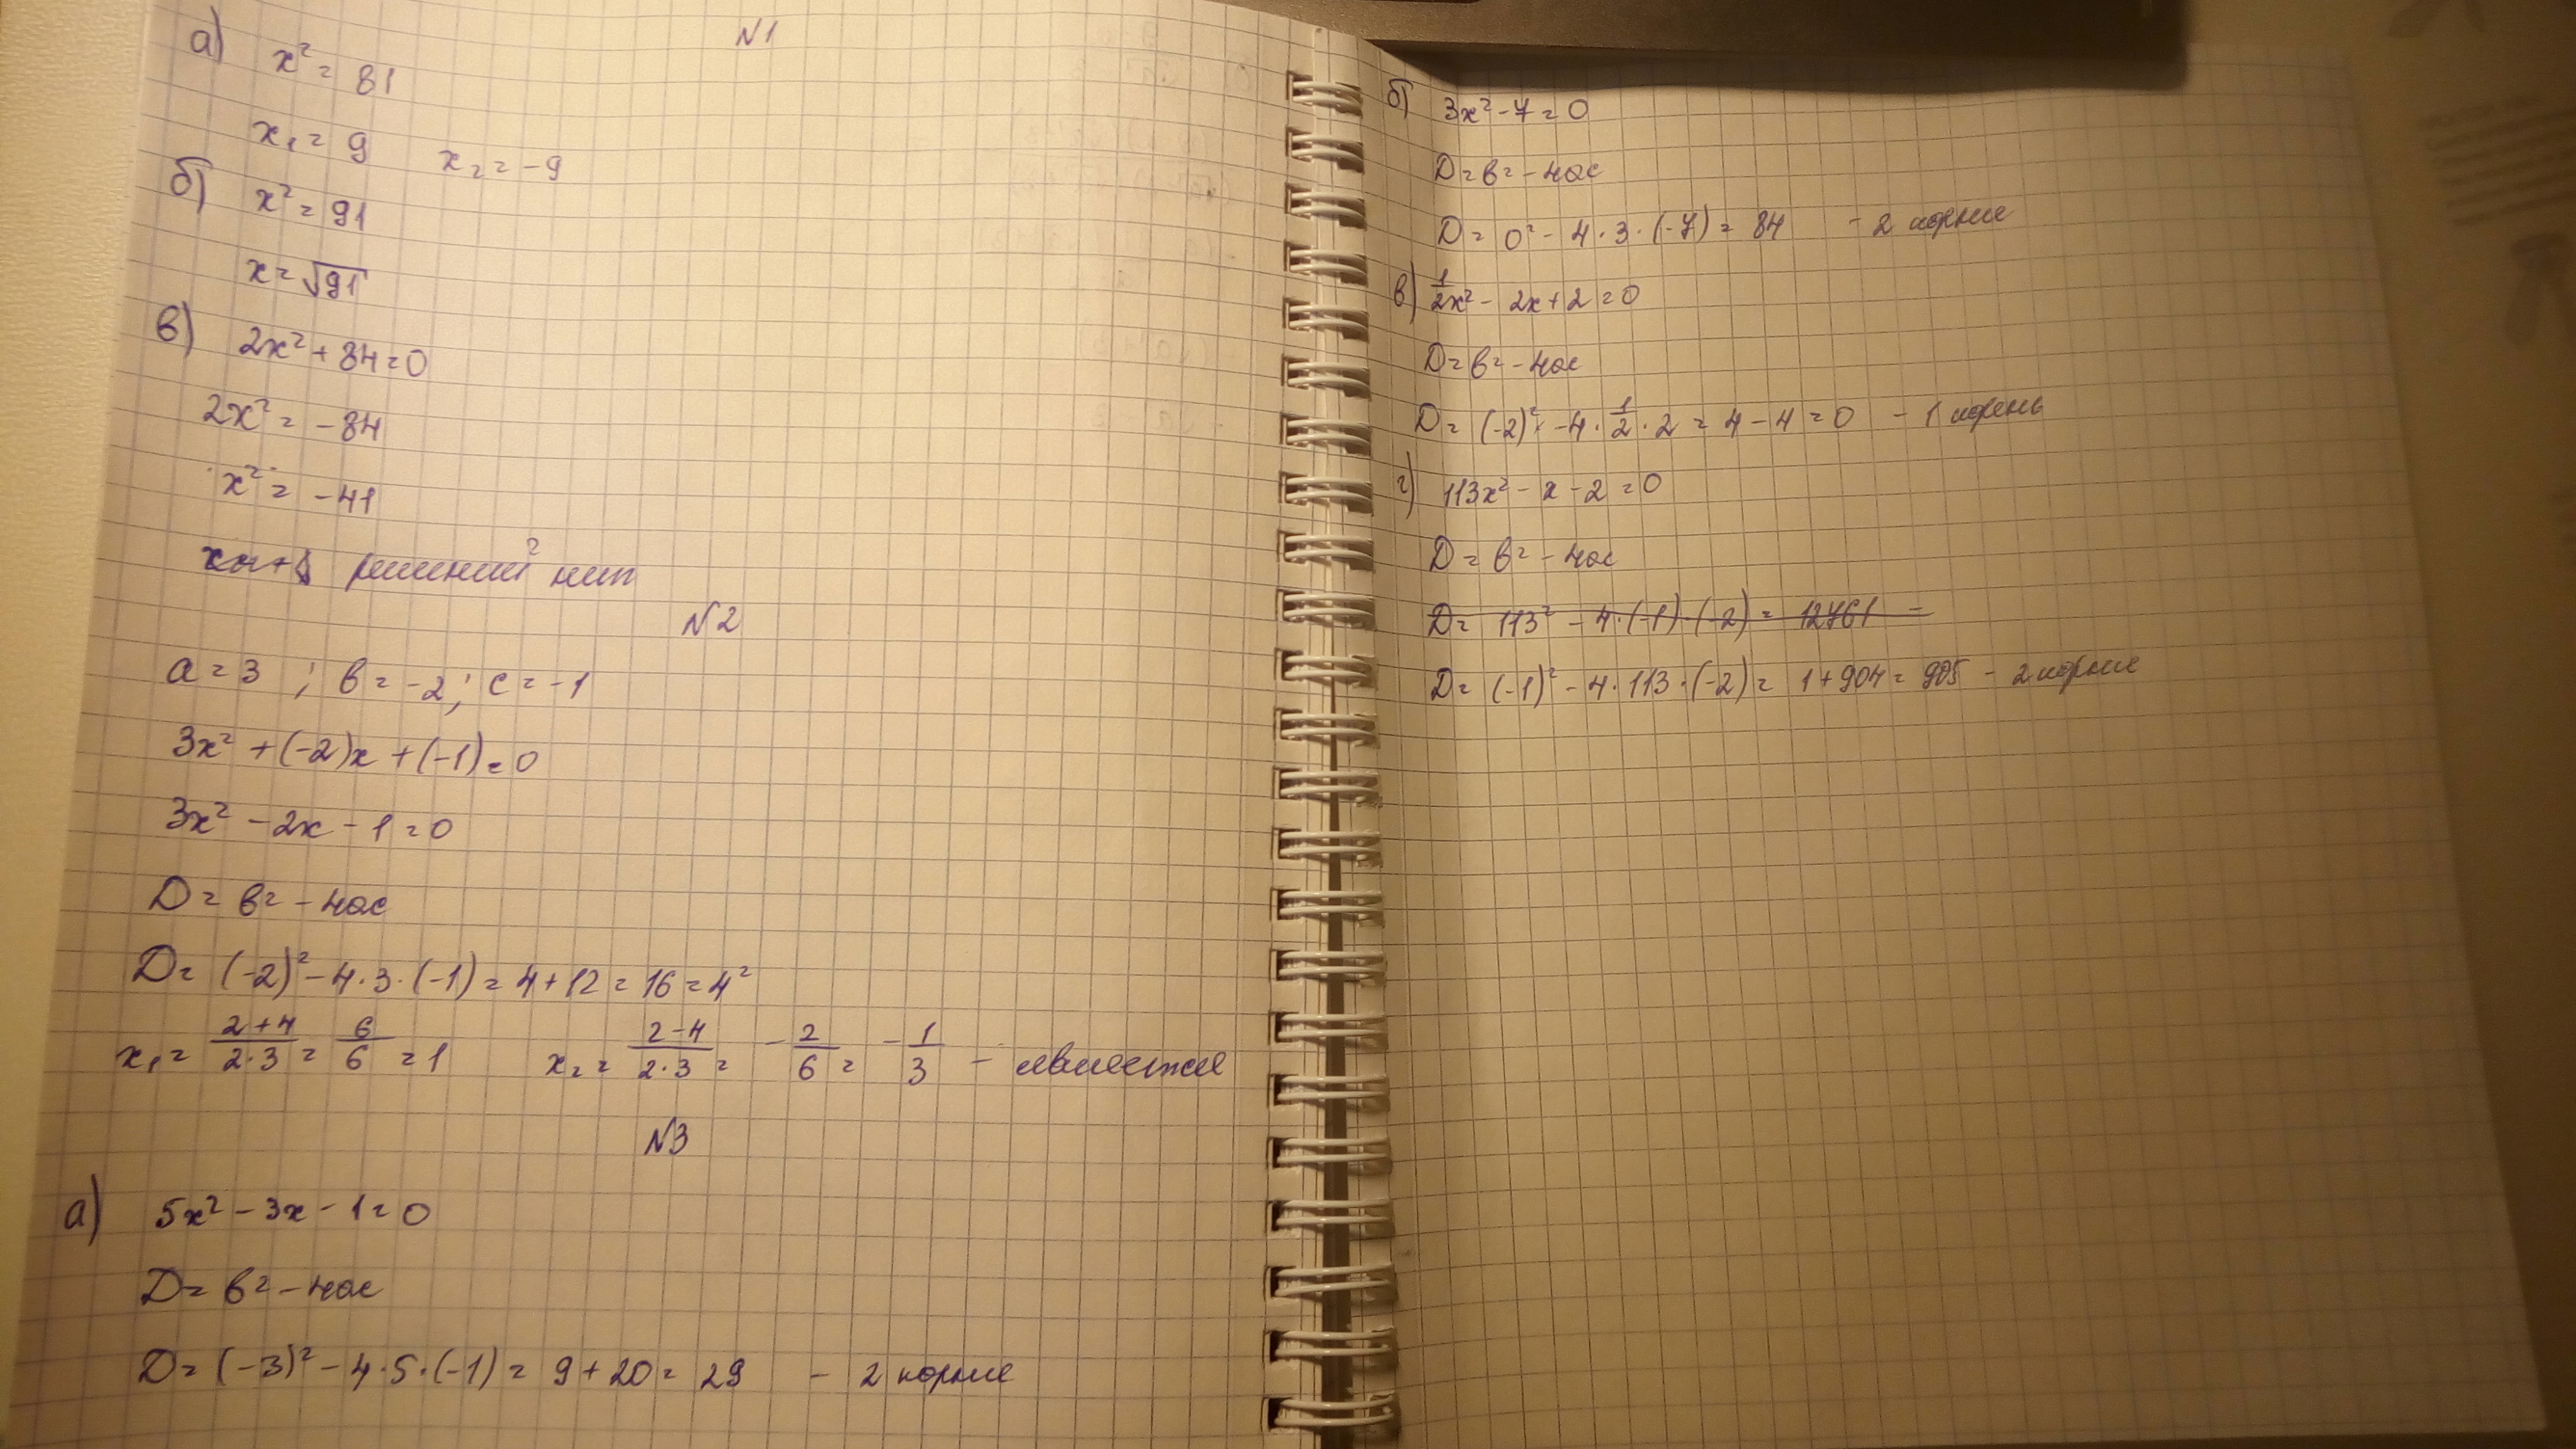 №1
а) x² = 81
x₁ = 9 x₂ = -9
б) x² = 91
x = √91
в) 2x² + 84 = 0
2x² = -84
x² = -41
решений нет
№2
a = 3 ; b = -2 ; c = -1
3x² + (-2)x + (-1) = 0
3x² - 2x - 1 = 0
D = b² - 4ac
D = (-2)² - 4·3·(-1) = 4 + 12 = 16 = 4²
x₁ = (2+4)/(2·3) = 6/6 = 1 x₂ = (2-4)/(2·3) = -2/6 = -1/3 - является
№3
а) 5x² - 3x - 1 = 0
D = b² - 4ac
D = (-3)² - 4·5·(-1) = 9 + 20 = 29 - 2 корня
б) 3x² - 7 = 0
D = b² - 4ac
D = 0² - 4·3·(-7) = 84 - 2 корня
в) 1/2x² - 2x + 2 = 0
D = b² - 4ac
D = (-2)² - 4·1/2·2 = 4 - 4 = 0 - 1 корень
г) 113x² - x - 2 = 0
D = b² - 4ac
D = 113² - 4·(-1)·(-2) = 12761 -
D = (-1)² - 4·113·(-2) = 1 + 904 = 905 - 2 корня